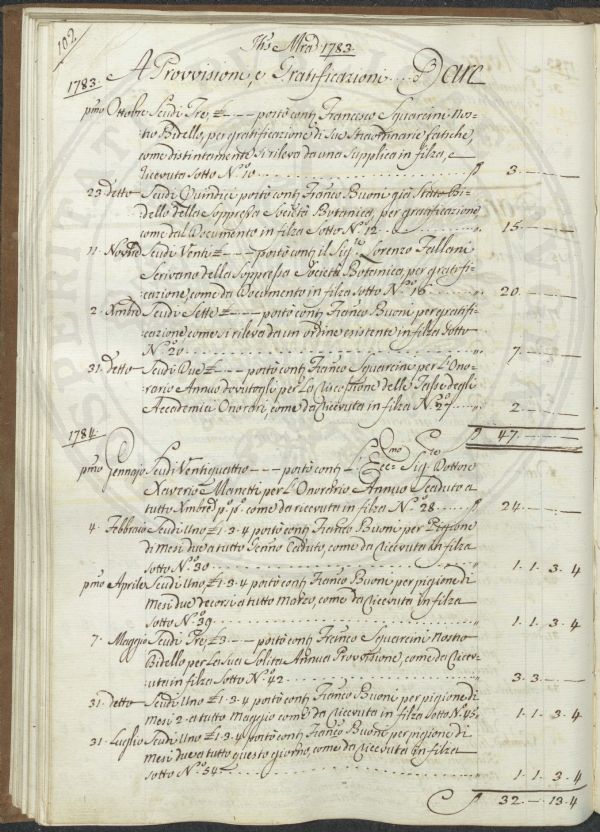 102
Jhs Mra 1783.
1783. A Provvisioni, e Gratificazioni .... Dare
pmo Ottobre Scudi Tre, £ - - - portò conti Francesco Squarcini No-
stro Bidello, per gratificazione di Sue Straordinarie fatiche,
come distintamente si rileva da una Supplica in filza, e
ricevuta sotto No. 10 ........ ƒ 3. — . —
23 detto Scudi Quindici portò conti Franco Buoni già Bi-
dello della Soppressa Società Botanica, per gratificazione
come dal Documento in filza sotto No. 12 ........ 15 — . —
11. Novbre Scudi Venti £ - - - portò conti il Sigre Lorenzo Tallani
Scrivano della Soppressa Società Botanica, per gratifi-
cazione, come da Documento in filza sotto No. 16 ...... 20. — . —
2. Xmbre Scudi Sette £ - - - portò conti Franco Buoni per gratifi-
cazione, come si rileva da un ordine esistente in filza sotto
No. 20 ........ 7. — . —
31. detto Scudi Due £ - - - portò conti Franco Squarcini per L'Ono-
rario Annuo dovutogli per La Riscossione delle Tasse degli
Accademici Onorari, come da Ricevuta in filza No. 27 .... 2. — . —
ƒ 47. — . —
1784.
pmo Gennajo Scudi Ventiquattro - - - portò conti L'Eccmo Sigre Dottore
Xaverio Manetti per L'Onorario Annuo Scaduto a
tutto Xmbre po. po. come da ricevuta in filza No. 28 .... ƒ 24. — . —
4. Febbraio Scudi Uno £ 1. 3. 4 portò conti Franco Buoni per Pigione
di Mesi due a tutto Genno Caduto, come da Ricevuta in filza
sotto No. 30 ........ 1. 1. 3. 4
pmo Aprile Scudi Uno, £ 1. 3. 4 portò conti Franco Buoni per pigione di
Mesi due decorsi a tutto Marzo, come da Ricevuta in filza
sotto No. 39 ........ 1. 1. 3. 4
7. Maggio Scudi Tre, £ 3. - - portò conti Franco Squarcini nostro
Bidello per La sua Solita Annua Provvisione, come da Ricev-
uta in filza Sotto No. 42 ........ 3. 3. — —
31. detto Scudi Uno £ 1. 3. 4 portò conti Franco Buoni per pigione di
mesi 2. a tutto Maggio come da Ricevuta in filza Sotto No. 45. 1. 1. 3. 4
31. Luglio Scudi Uno £ 1. 3. 4 portò conti Franco Buoni per pigione di
Mesi due a tutto questo giorno, come da Ricevuta in filza
sotto No. 54 ........ 1. 1. 3. 4
ƒ 32. — . 13. 4